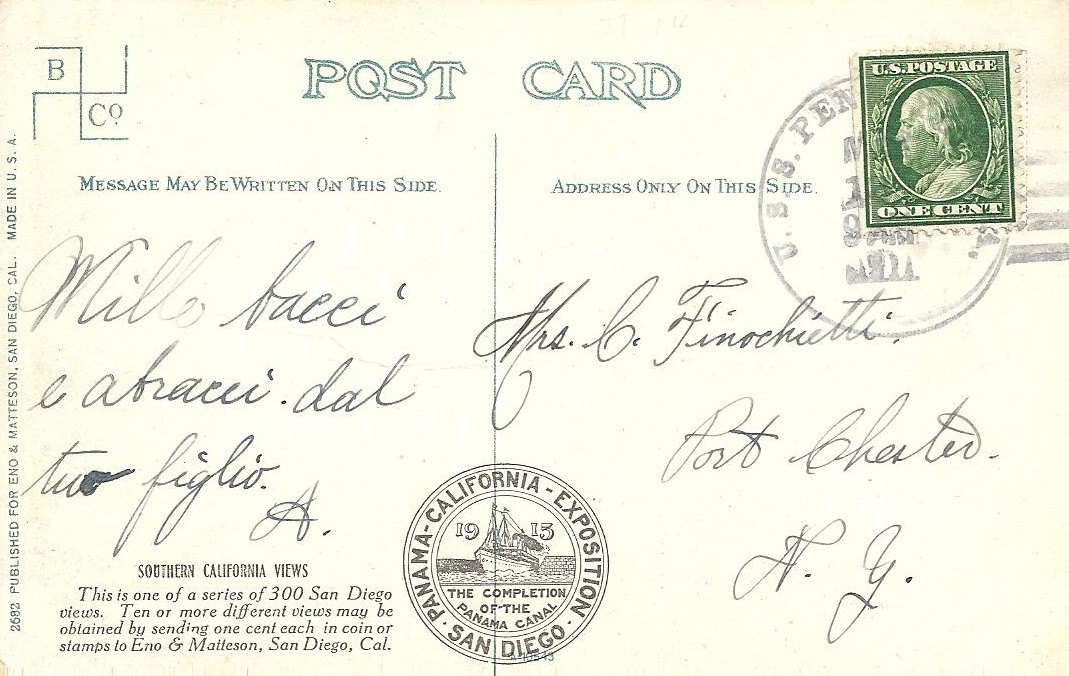 B
Cº
POST CARD
U.S.POSTAGE
ONE CENT
U.S.S. PEN
MESSAGE MAY BE WRITTEN ON THIS SIDE.
ADDRESS ONLY ON THIS SIDE.
2682 PUBLISHED FOR ENO & MATTESON, SAN DIEGO, CAL. MADE IN U. S. A.
Mille bacci
e abracci. dal
tuo figlio.
A.
Mrs. C. Finochietti.
Port Chester.
N. Y.
SOUTHERN CALIFORNIA VIEWS
This is one of a series of 300 San Diego
views. Ten or more different views may be
obtained by sending one cent each in coin or
stamps to Eno & Matteson, San Diego, Cal.
PANAMA-CALIFORNIA-EXPOSITION
1915
THE COMPLETION
OF·THE
PANAMA CANAL
SAN DIEGO